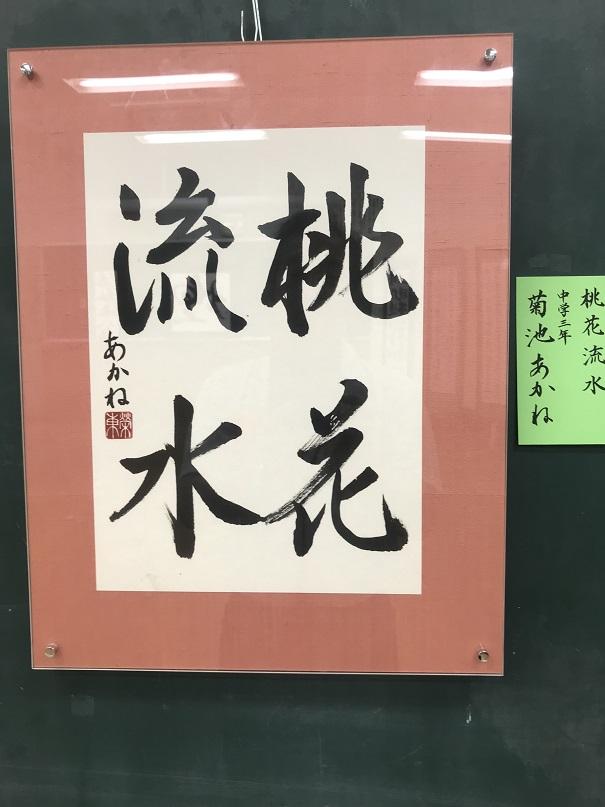 桃花
流水
あかね
榮東
桃花流水
中学三年
菊池あかね